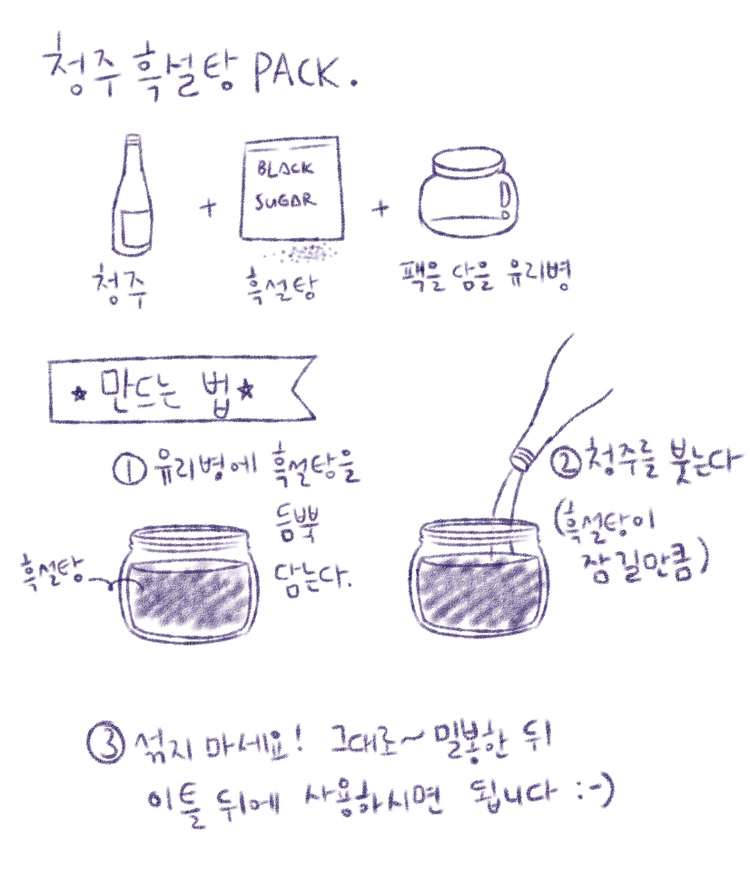 청주 흑설탕 PACK.
BLACK
SUGAR
+
+
청주
흑설탕
팩을 담을 유리병
★ 만드는 법 ★
① 유리병에 흑설탕을
듬뿍
담는다.
흑설탕
② 청주를 붓는다
(흑설탕이
잠길만큼)
③ 섞지 마세요! 그대로~ 밀봉한 뒤
이틀 뒤에 사용하시면 됩니다 :-)